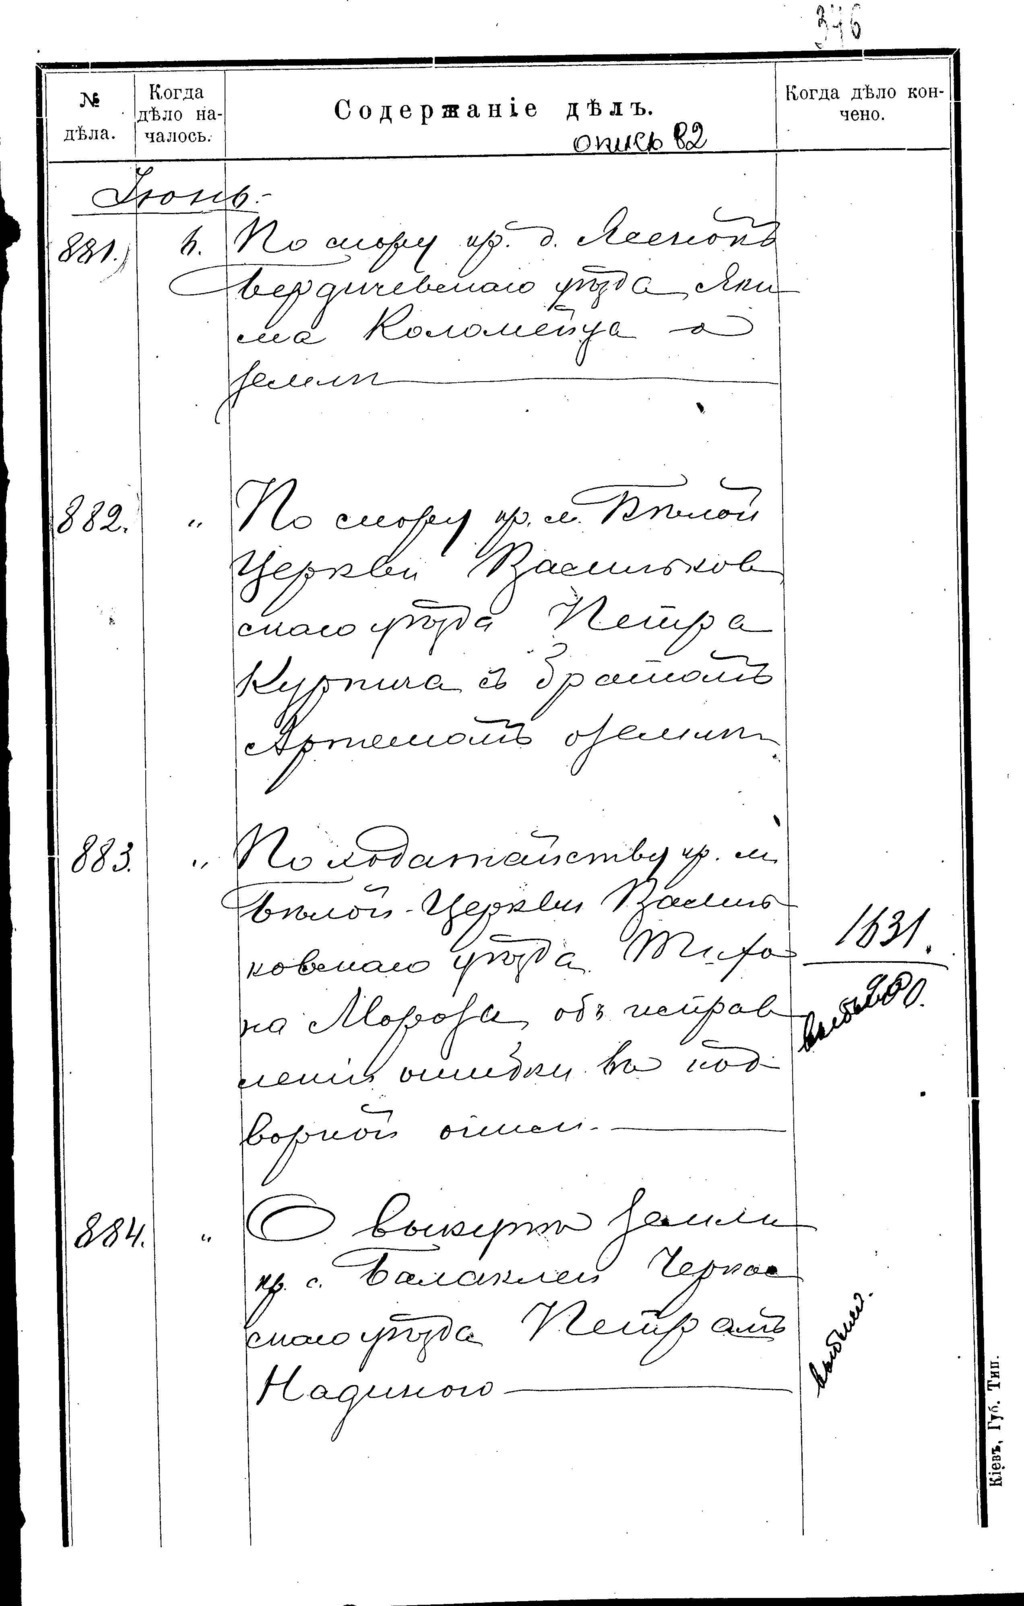 346
№ дѣла.
Когда дѣло на-
чалось.
Содержаніе дѣлъ.
Когда дѣло кон-
чено.
опись 82
Іюнь.
881. 4. По спору кр. д. Ясенокъ
Бердичевскаго уѣзда Яки
ма Коломейца о
землѣ
882. " По спору кр. м. Бѣлой
Церкви Васильков
скаго уѣзда Петра
Курпича съ братомъ
Артемомъ о землѣ
883. " По ходатайству кр. м.
Бѣлой-Церкви Василь
ковскаго уѣзда Тихо
на Мороза, объ исправ
леніи ошибки въ под
ворной описи.
1631.
884. " О выкупѣ земли
кр. с. Балаклеи Черкас
скаго уѣзда Петромъ
выбыло.
Кіевъ, Губ. Тип.